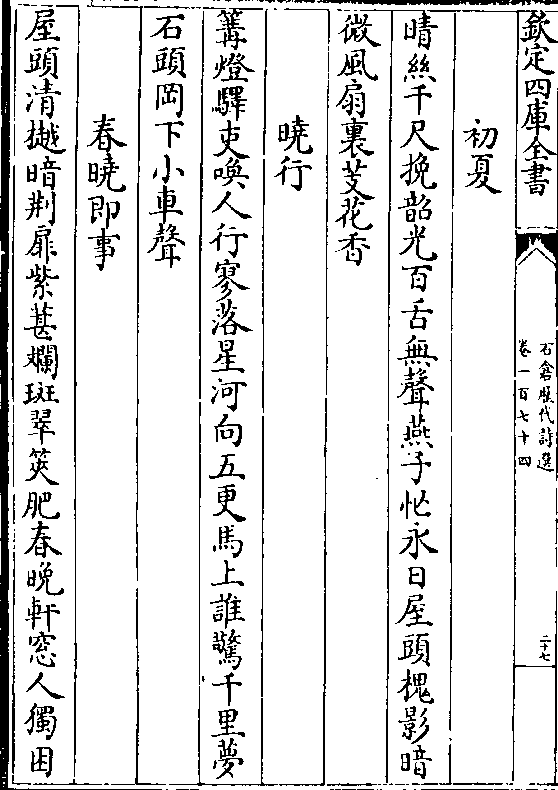 欽定四庫全書
石倉歴代詩選
卷一百七十四
二十七
初夏
晴絲千尺挽韶光百舌無聲燕子忙永日屋頭槐影暗
微風扇裏芰花香
曉行
篝燈驛吏喚人行寥落星河向五更馬上誰驚千里夢
石頭岡下小車聲
春曉即事
屋頭清樾暗荆扉紫葚斕斑翠筴肥春晚軒窓人獨困